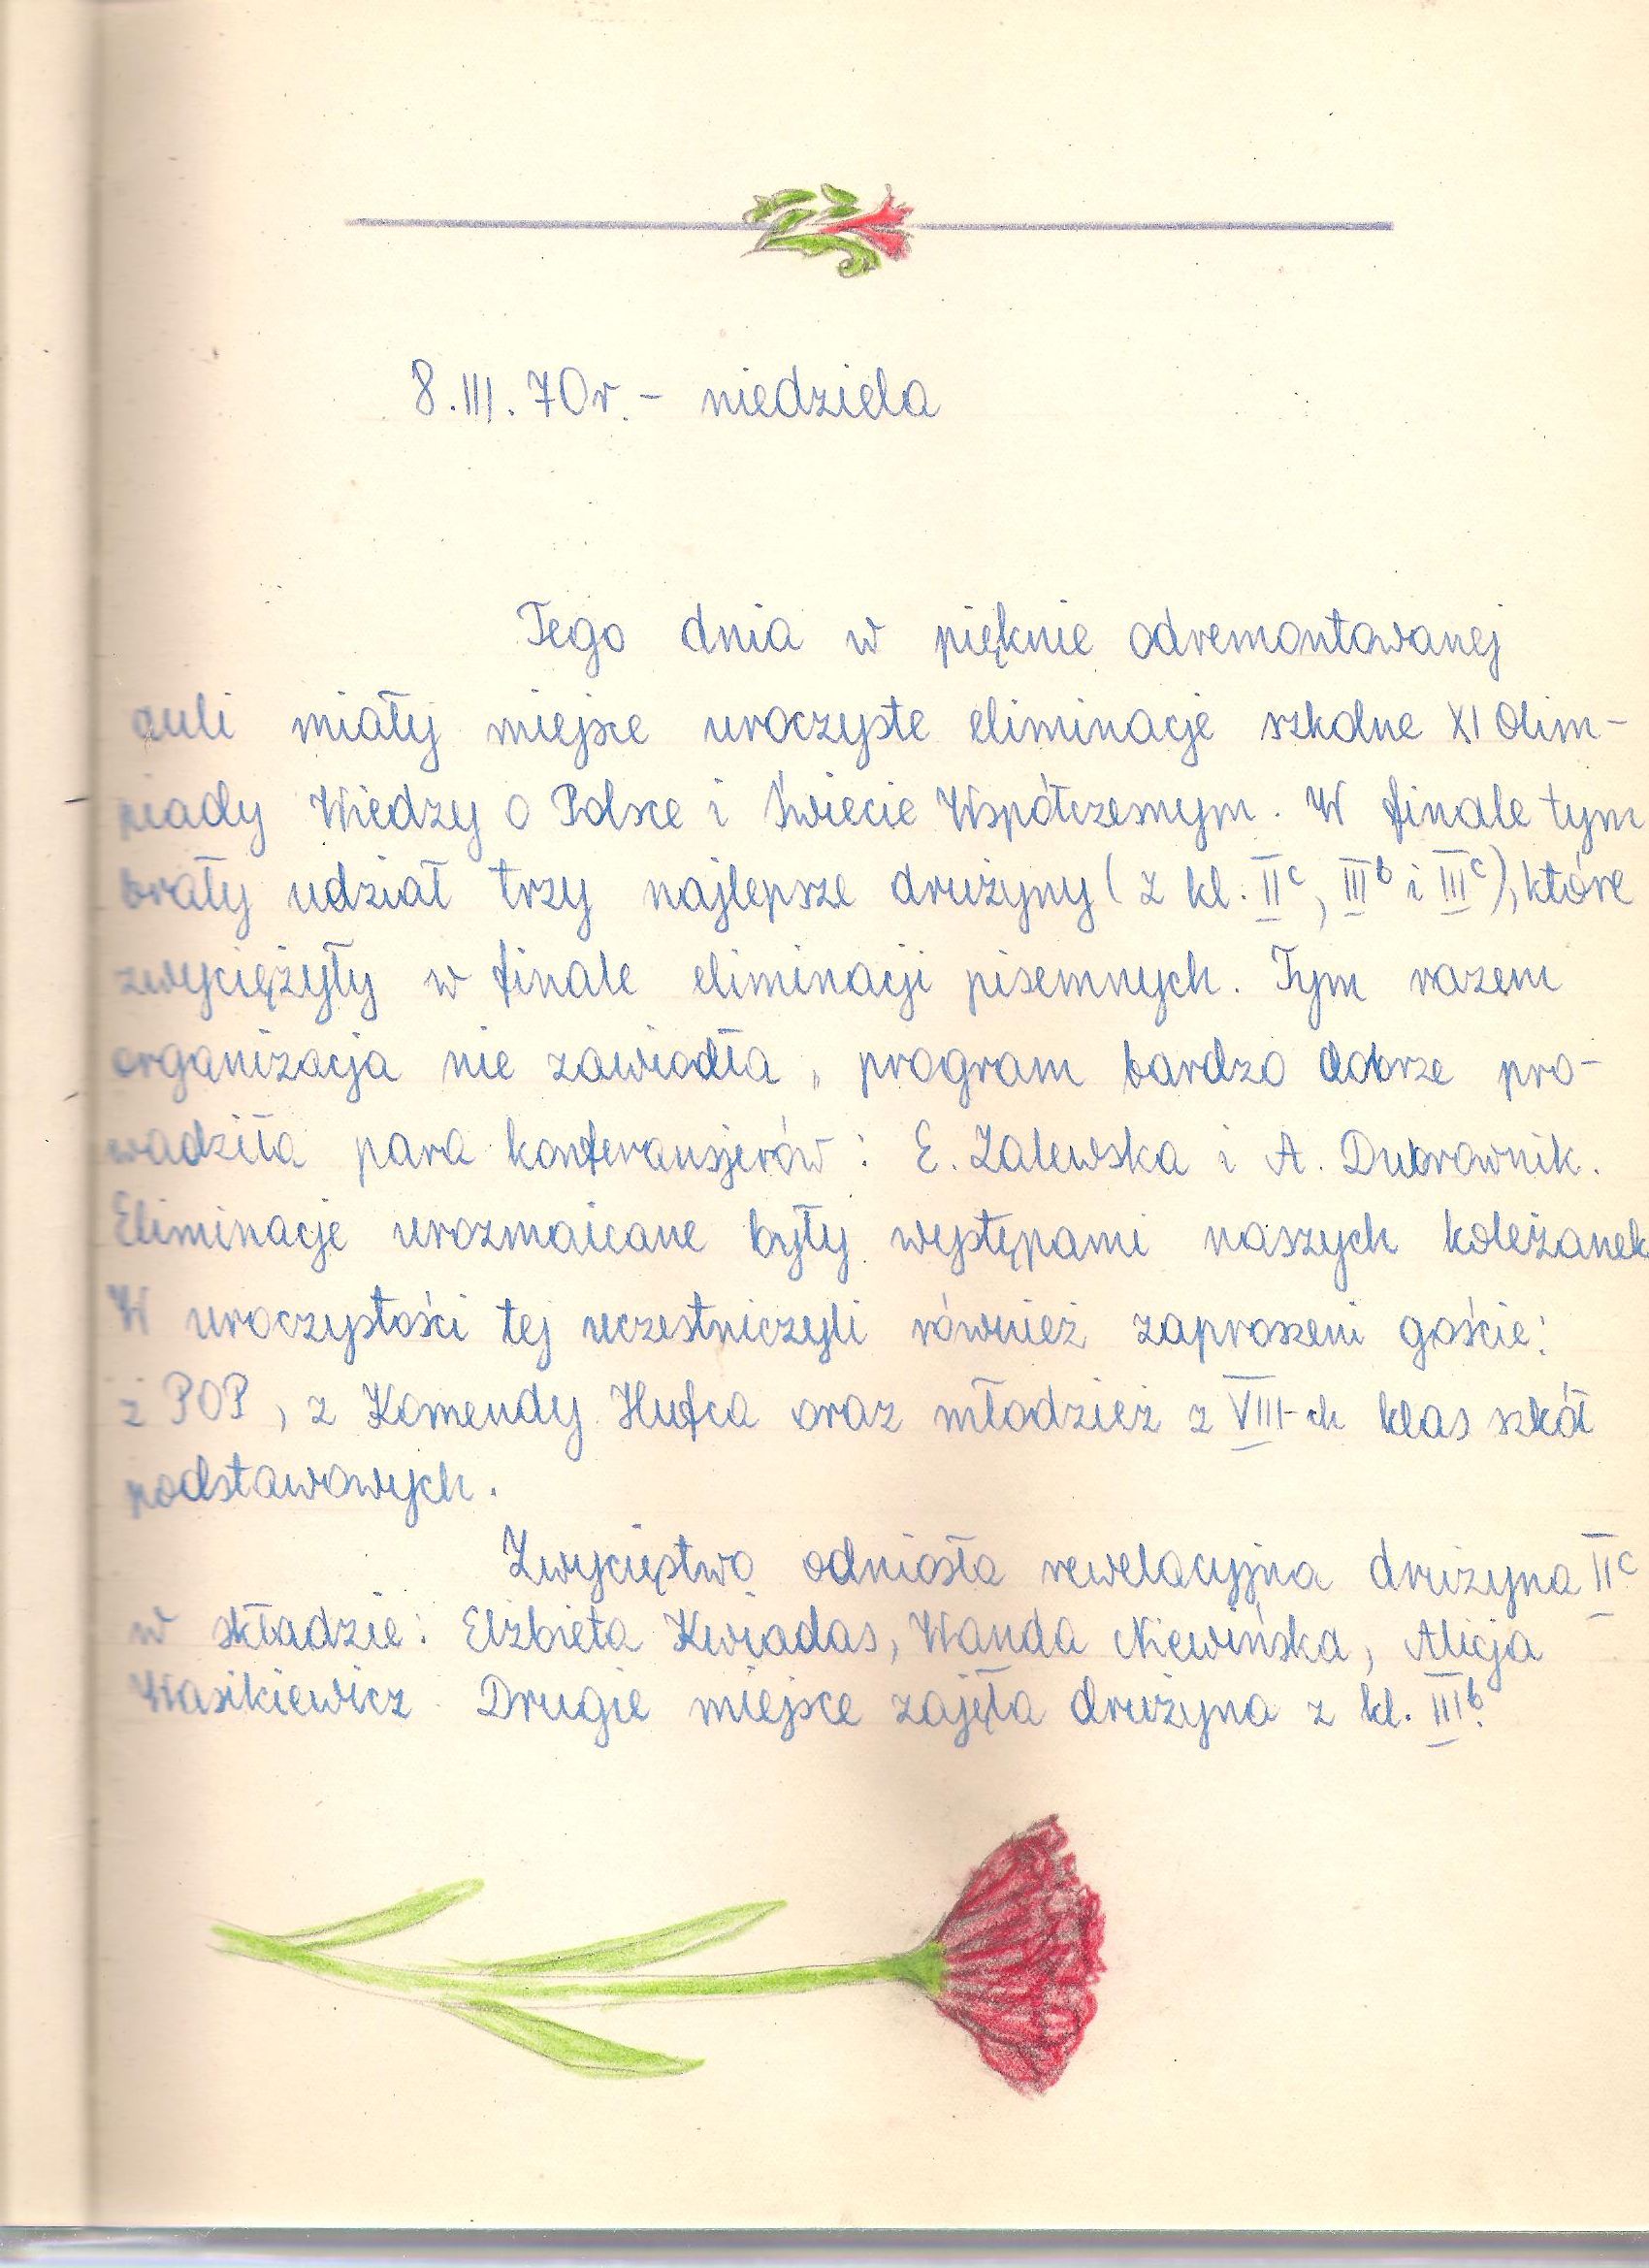 8.III.70r. - niedziela
Tego dnia w pięknie odremontowanej
auli miały miejsce uroczyste eliminacje szkolne XI Olim-
piady Wiedzy o Polsce i Świecie Współczesnym. W finale tym
brały udział trzy najlepsze drużyny (z kl. IIc, IIIb i IIIc), które
zwyciężyły w finale eliminacji pisemnych. Tym razem
organizacja nie zawiodła, program bardzo dobrze pro-
wadziła para konferansjerów: E. Zalewska i A. Dubrownik.
Eliminacje urozmaicane były występami naszych koleżanek
W uroczystości tej uczestniczyli również zaproszeni goście:
z POP, z Komendy Hufca oraz młodzież z VIII-ch klas szkół
podstawowych.
Zwycięstwo odniosła rewelacyjna drużyna IIc
w składzie: Elżbieta Kwiadas, Wanda Niewińska, Alicja
Wasikiewicz. Drugie miejsce zajęła drużyna z kl. IIIb.